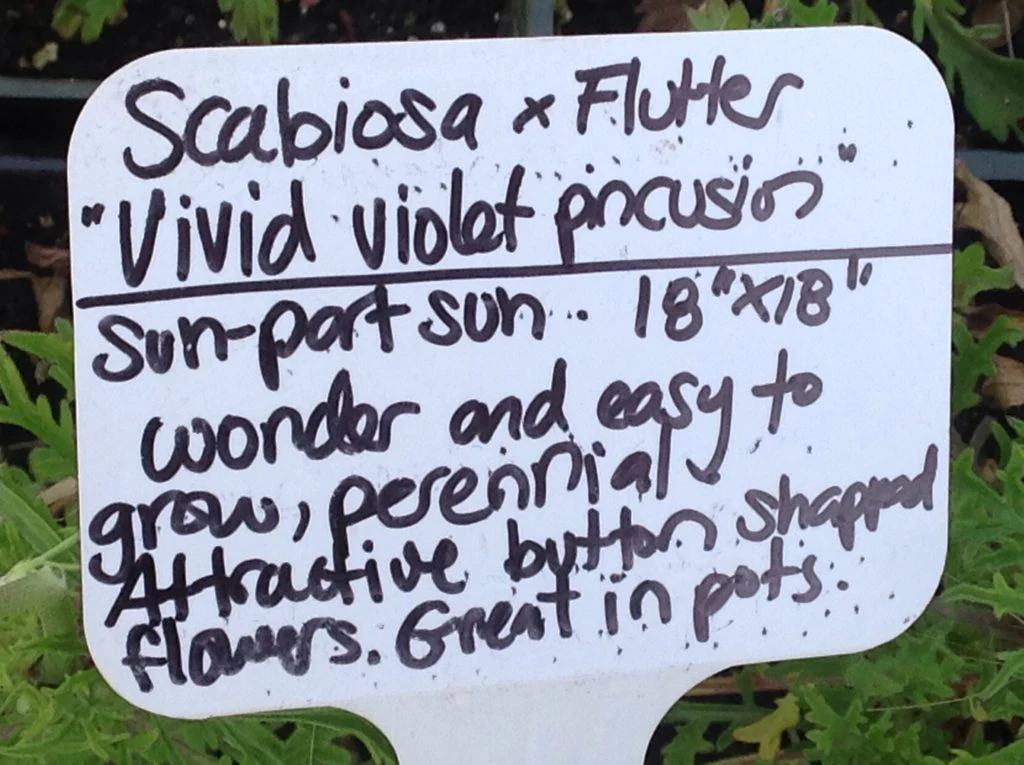 Scabiosa x Flutter
"Vivid violet pincusion"
Sun-part sun. 18"x18"
wonder and easy to
grow, perennial
Attractive button shapped
flowers. Great in pots.